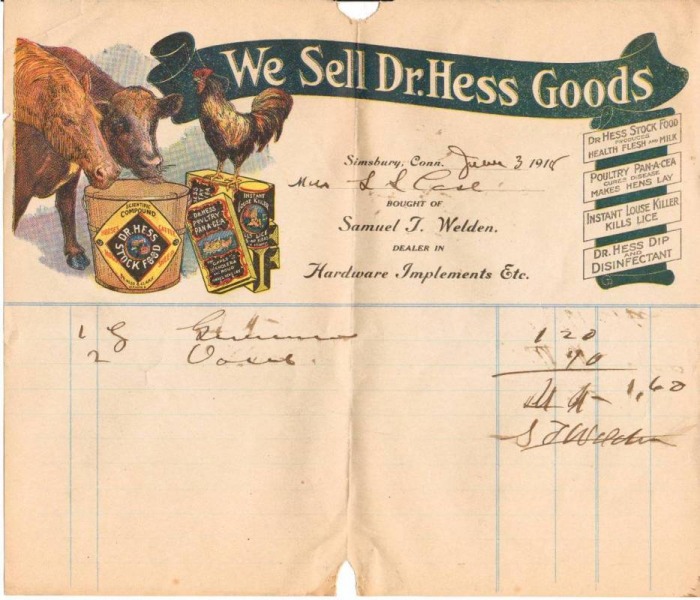 We Sell Dr. Hess Goods
DR HESS STOCK FOOD
PRODUCES
HEALTH FLESH AND MILK
POULTRY PAN-A-CEA
CURES DISEASE
MAKES HENS LAY
INSTANT LOUSE KILLER
KILLS LICE
DR. HESS DIP
AND
DISINFECTANT
SCIENTIFIC
COMPOUND
DR. HESS
STOCK FOOD
DR. HESS
POULTRY
PAN-A-CEA
INSTANT
LOUSE KILLER
Simsbury, Conn. June 3 1918
S S Case
BOUGHT OF
Samuel T. Welden.
DEALER IN
Hardware Implements Etc.
1 G 1 20
2 40
1,60
S T Welden